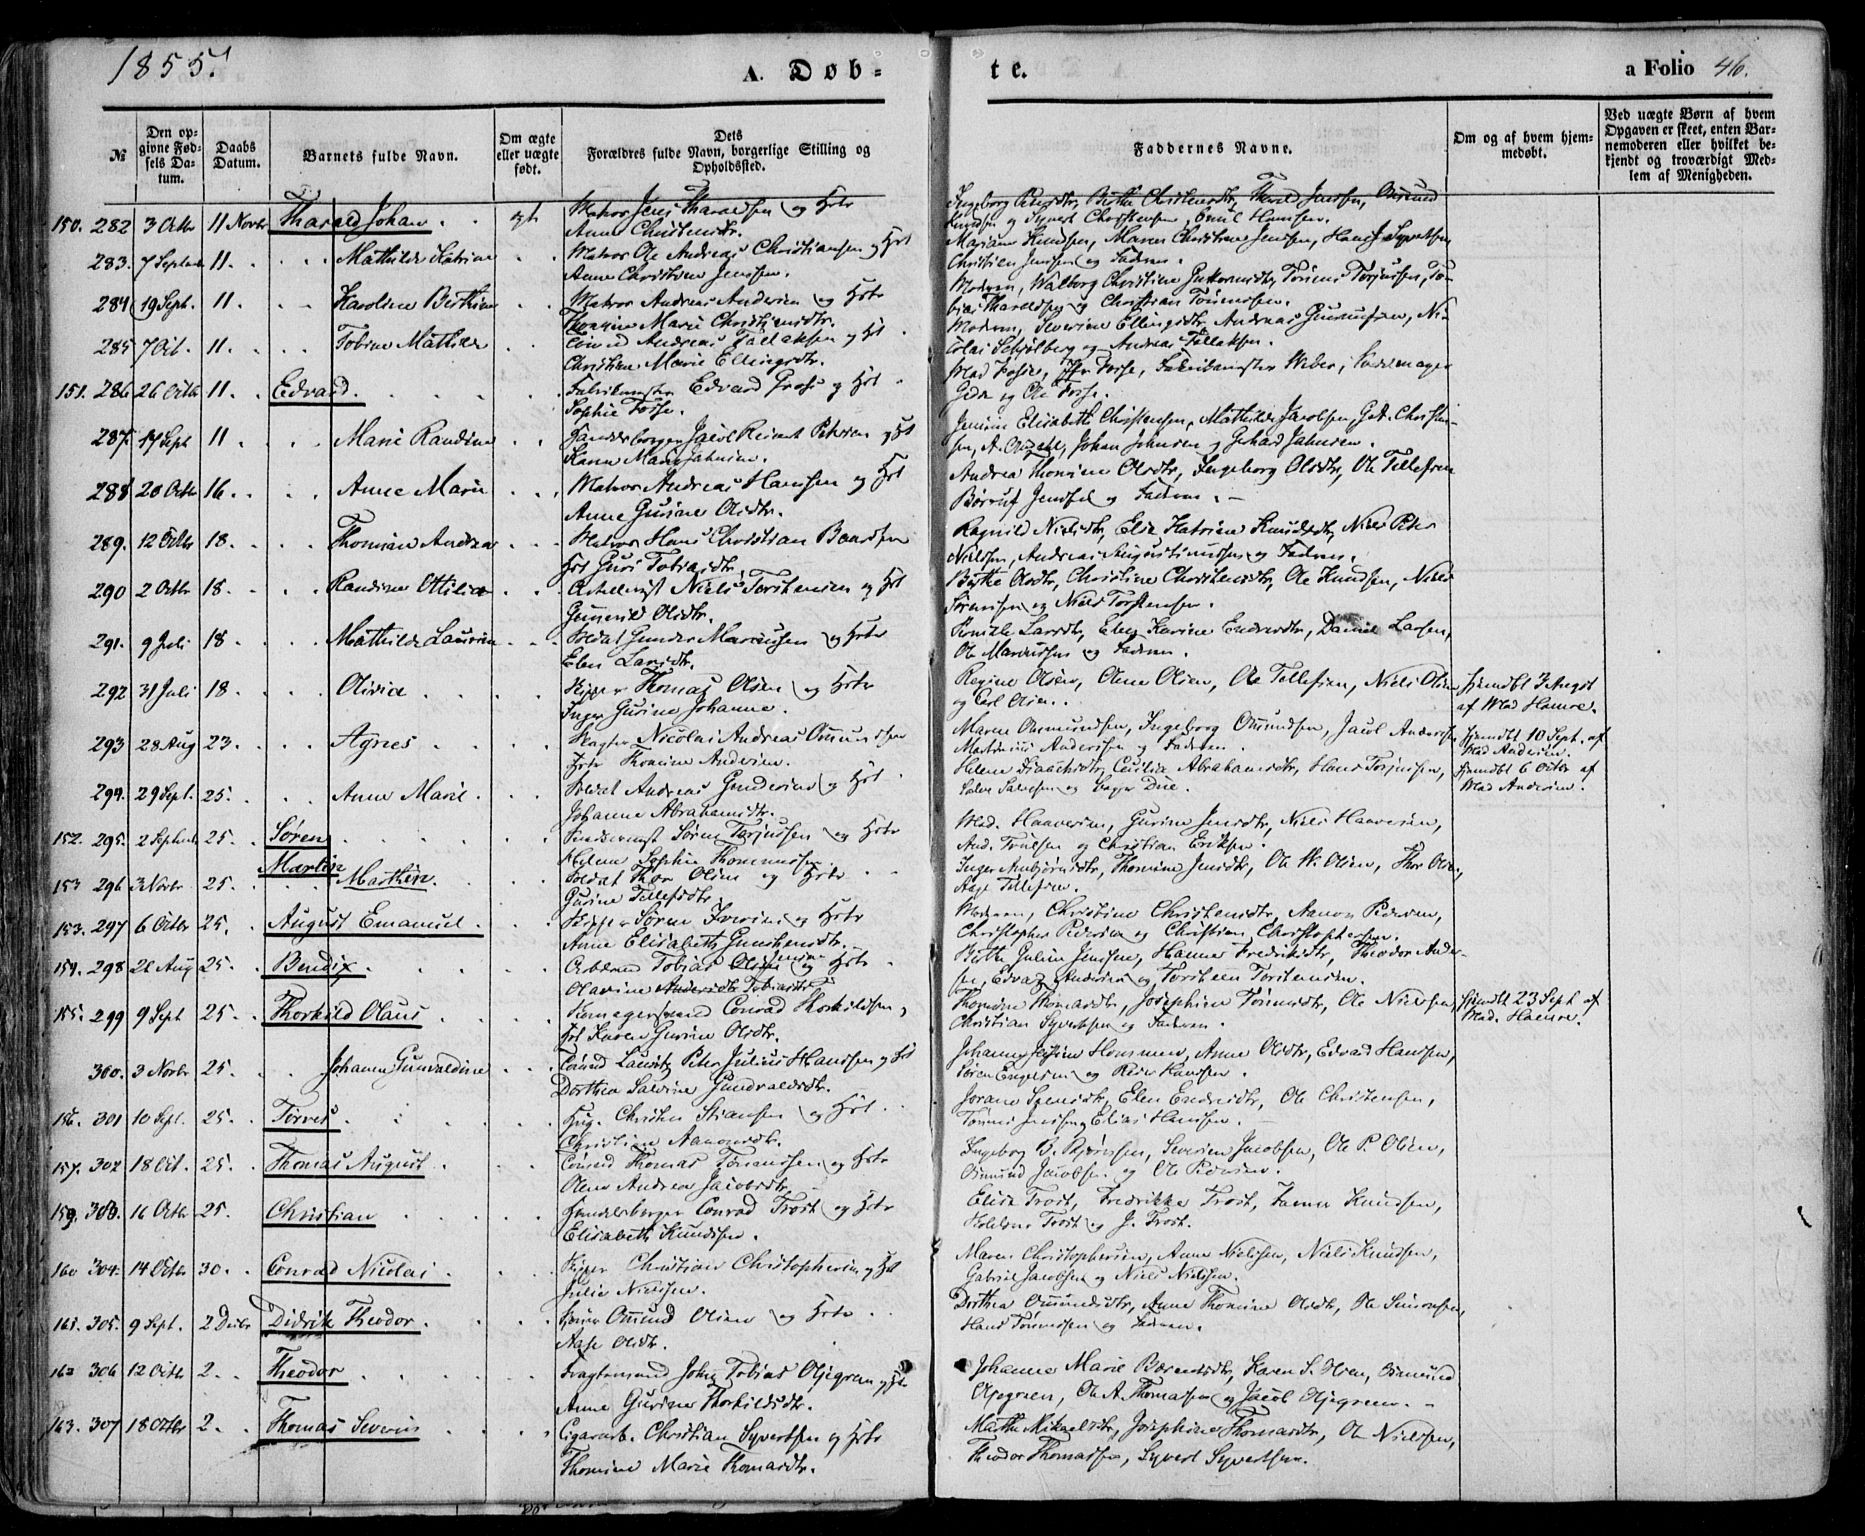 1855.
A. Døb-
te.
a Folio 46.
№
Den op-
givne Fød-
sels Da-
tum.
Daabs
Datum.
Barnets fulde Navn.
Om ægte
eller uægte
født.
Dets
Forældres fulde Navn, borgerlige Stilling og
Opholdssted.
Faddernes Navne.
Om og af hvem hjem-
medøbt.
Ved uægte Børn af hvem
Opgaven er skeet, enten Bar-
nemoderen eller hvilket be-
kjendt og troværdigt Med-
lem af Menigheden.
150. 282 3 Octbr 11 Novbr Tharald Johan . . ægt. Matros Jens Tharaldsen og Hstr
Anne Christensdtr.
Ingeborg Christensdtr, Tharald Jensen,
Knudsen og Syvert Christensen, Emil Hansen.
283. 7 Septbr 11. Mathilde Katrine Matros Ole Andreas Christiansen og Hst
Anne Christine Jenssen.
Mariane Knudsen, Maren Christine Jenssen, Hans Syvertsen,
Christian Jenssen og Faderen.
284 19 Sept. 11. Karoline Berthine Matros Andreas Andersen og Hstr
Thomine Marie Christiansdtr.
Moderen, Walborg Christine Guttormsdtr, Tønnes Torjussen, To-
bias Tharaldsen og Christian Tønnessen.
285 7 Oct. 11. Tobine Mathilde Andreas Tellefsen og Hst
Christine Marie Ellingsdtr.
Moderen, Severine Ellingsdtr, Andreas Gunnufsen, Ni-
colai Schjølberg og Andreas Tellefsen.
151. 286 26 Octbr 11. Edvard. Edvard Gross og Hst
Sophie Fosse.
Mad Fosse, Fosse, Weber,
og Ole Fosse.
287. 17 Sept 11. Marie Randine Handelsborger Jacob Petersen og Hst
Karen Marie Jahnsen.
Elisabeth Christensen, Mathilde Jacobsen, G.A. Christen-
sen, A. Johan Johnsen og Gerhard Jahnsen.
288 20 Octbr 16. Anne Marie Matros Andreas Hansen og Hst
Anne Gurine Olsdtr.
Andrea Thomine Olsdtr, Ingeborg Olsdtr, Ole Tellefsen
Jensen og Faderen.
289. 12 Octbr 18. Thomine Andrea Matros Hans Christian Baardsen
Hst Guri Tobiasdtr,
Ragnild Nielsdtr, Else Katrine Knudsdtr, Niels Peter
Nielsen, Andreas Augustinussen og Faderen.
290 2 Octbr 18. Randine Ottilia Niels Torstensen og Hst
Gunnild Olsdtr.
Birthe Olsdtr, Christine Christensdtr, Ole Knudsen, Niels
Sørensen og Niels Torstensen.
291. 9 Juli 18 Mathilde Laurine Soldat Gunder Marcussen og Hstr
Elen Larsdtr.
Larsdtr, Elen Karine Endresdtr, Daniel Larsen,
Ole Marcussen og Faderen.
292 31 Juli 18. Olivia Skipper Thomas Olsen og Hstr
Inger Gurine Johanne.
Regine Olsen, Olene Olsen, Ole Tellefsen, Niels Olsen
og Carl Olsen.
hjemdbt 3 August
af Mad Hamre.
293 28 Aug 23. Agnes Nicolai Andreas Omundsen
Hstr Thomine Andersen.
Maren Omundsen, Ingeborg Omundsen, Jacob Andersen
Andersen og Faderen.
hjemdbt 10 Sept. af
Mad Andersen.
294. 29 Sept. 25. Anne Marie. Soldat Andreas Gundersen og Hst
Johanne Abrahamsdtr.
Helene Isaachsdtr, Cecilia Abrahamsdtr, Hans Torjussen,
Salve Salvesen og Due.
hjemdbt 6 Octbr af
Mad Andersen.
152. 295. 2 Septembr 25. Søren Søren Torjussen og Hstr
Helene Sophie Thommassen.
Mad. Haaversen, Gurine Jensdtr, Niels Haaversen,
And. Truelsen og Christian Eriksen.
153 296 3 Novbr 25. Martin Marthin. Soldat Thor Olsen og Hstr
Gurine Tellefsdtr.
Inger Anbjørnsdtr, Thomine Jensdtr, Ole W. Olsen, Thor Olsen,
Aage Tellefsen.
153. 297 6 Octbr 25. August Emanuel. Skipper Søren Iversen og Hstr
Anne Elisabeth Gunstensdtr.
Moderen, Christine Christensdtr, Aanon Pedersen,
Christopher Pedersen og Christian Christophersen.
154. 298 28 Aug 25. Bendix. Tobias Olsen og Hstr
Olavine Andersdtr Tobiasdtr
Birthe Guline Jenssen, Hanne Fredriksdtr, Theodor Ander-
sen, Edvard Andersen og Torsteen Torstensen.
155. 299 9 Sept 25. Thorkild Olaus Conrad Thorkildsen,
Hst Karen Gurine Olsdtr.
Thomine Thomasdtr, Josephine Tønnesdtr, Ole Nielsen,
Christian Syvertsen og Faderen.
hjemdbt 23 Sept af
Mad. Hamre.
300. 3 Novbr 25. Johanne Gunvaldine Lauritz Peter Julius Hanssen og Hst
Dorthea Salvine Gundvaldsdtr.
Johanne Hommen, Anne Olsdtr, Edvard Hansen,
Søren Engelsen og Peder Hansen.
156. 301 10 Sept. 25. Torvei Christen Stiansen og Hst
Christine Aanonsdtr.
Jorane Svensdtr, Elen Endresdtr, Ole Christensen,
Tønnes Jenssen, Elias Hanssen.
157. 302 18 Oct. 25. Thomas August Thomas Tønnessen og Hstr
Olene Andrea Jacobsdtr.
Ingeborg B. Bjørnsen, Severine Jacobsen, Ole P. Olsen,
Osmund Jacobsen og Ole Pedersen.
159. 303. 16 Octbr 25. Christian Handelsborger Conrad Frost og Hstr
Elisabeth Knudsen.
Elise Frost, Fredrikke Frost, Hanne Knudsen,
Frost og J. Frost.
160 304. 14 Octbr 30. Conrad Nicolai. Skipper Christian Christophersen og Hst
Julie Nielsen.
Maren Christophersen, Anne Nielsen, Niels Knudsen,
Gabriel Jacobsen og Niels Nielsen.
161. 305. 9 Sept. 2 Decbr Didrik Theodor. Omund Olsen og Hstr
Aase Olsdtr.
Dorthea Omundsdtr, Anne Thomine Olsdtr, Ole Simonsen,
Hans Tønnessen og Faderen.
162 306 12 Octbr 2. Theodor Fragtemand John Tobias Olsen og Hstr
Anne Gurine Thorkildsdtr.
Johanne Marie Bærentsdtr, Karen S. Osmund
Ole A. Thomassen og Jacob
163. 307 18 Octbr 2. Thomas Severin Cigararb. Christian Syvertsen og Hstr
Thomine Marie Thomasdtr.
Marthe Mikaelsdtr, Josephine Thomasdtr, Ole Nielsen,
Theodor Thomassen, Syvert Syvertsen.